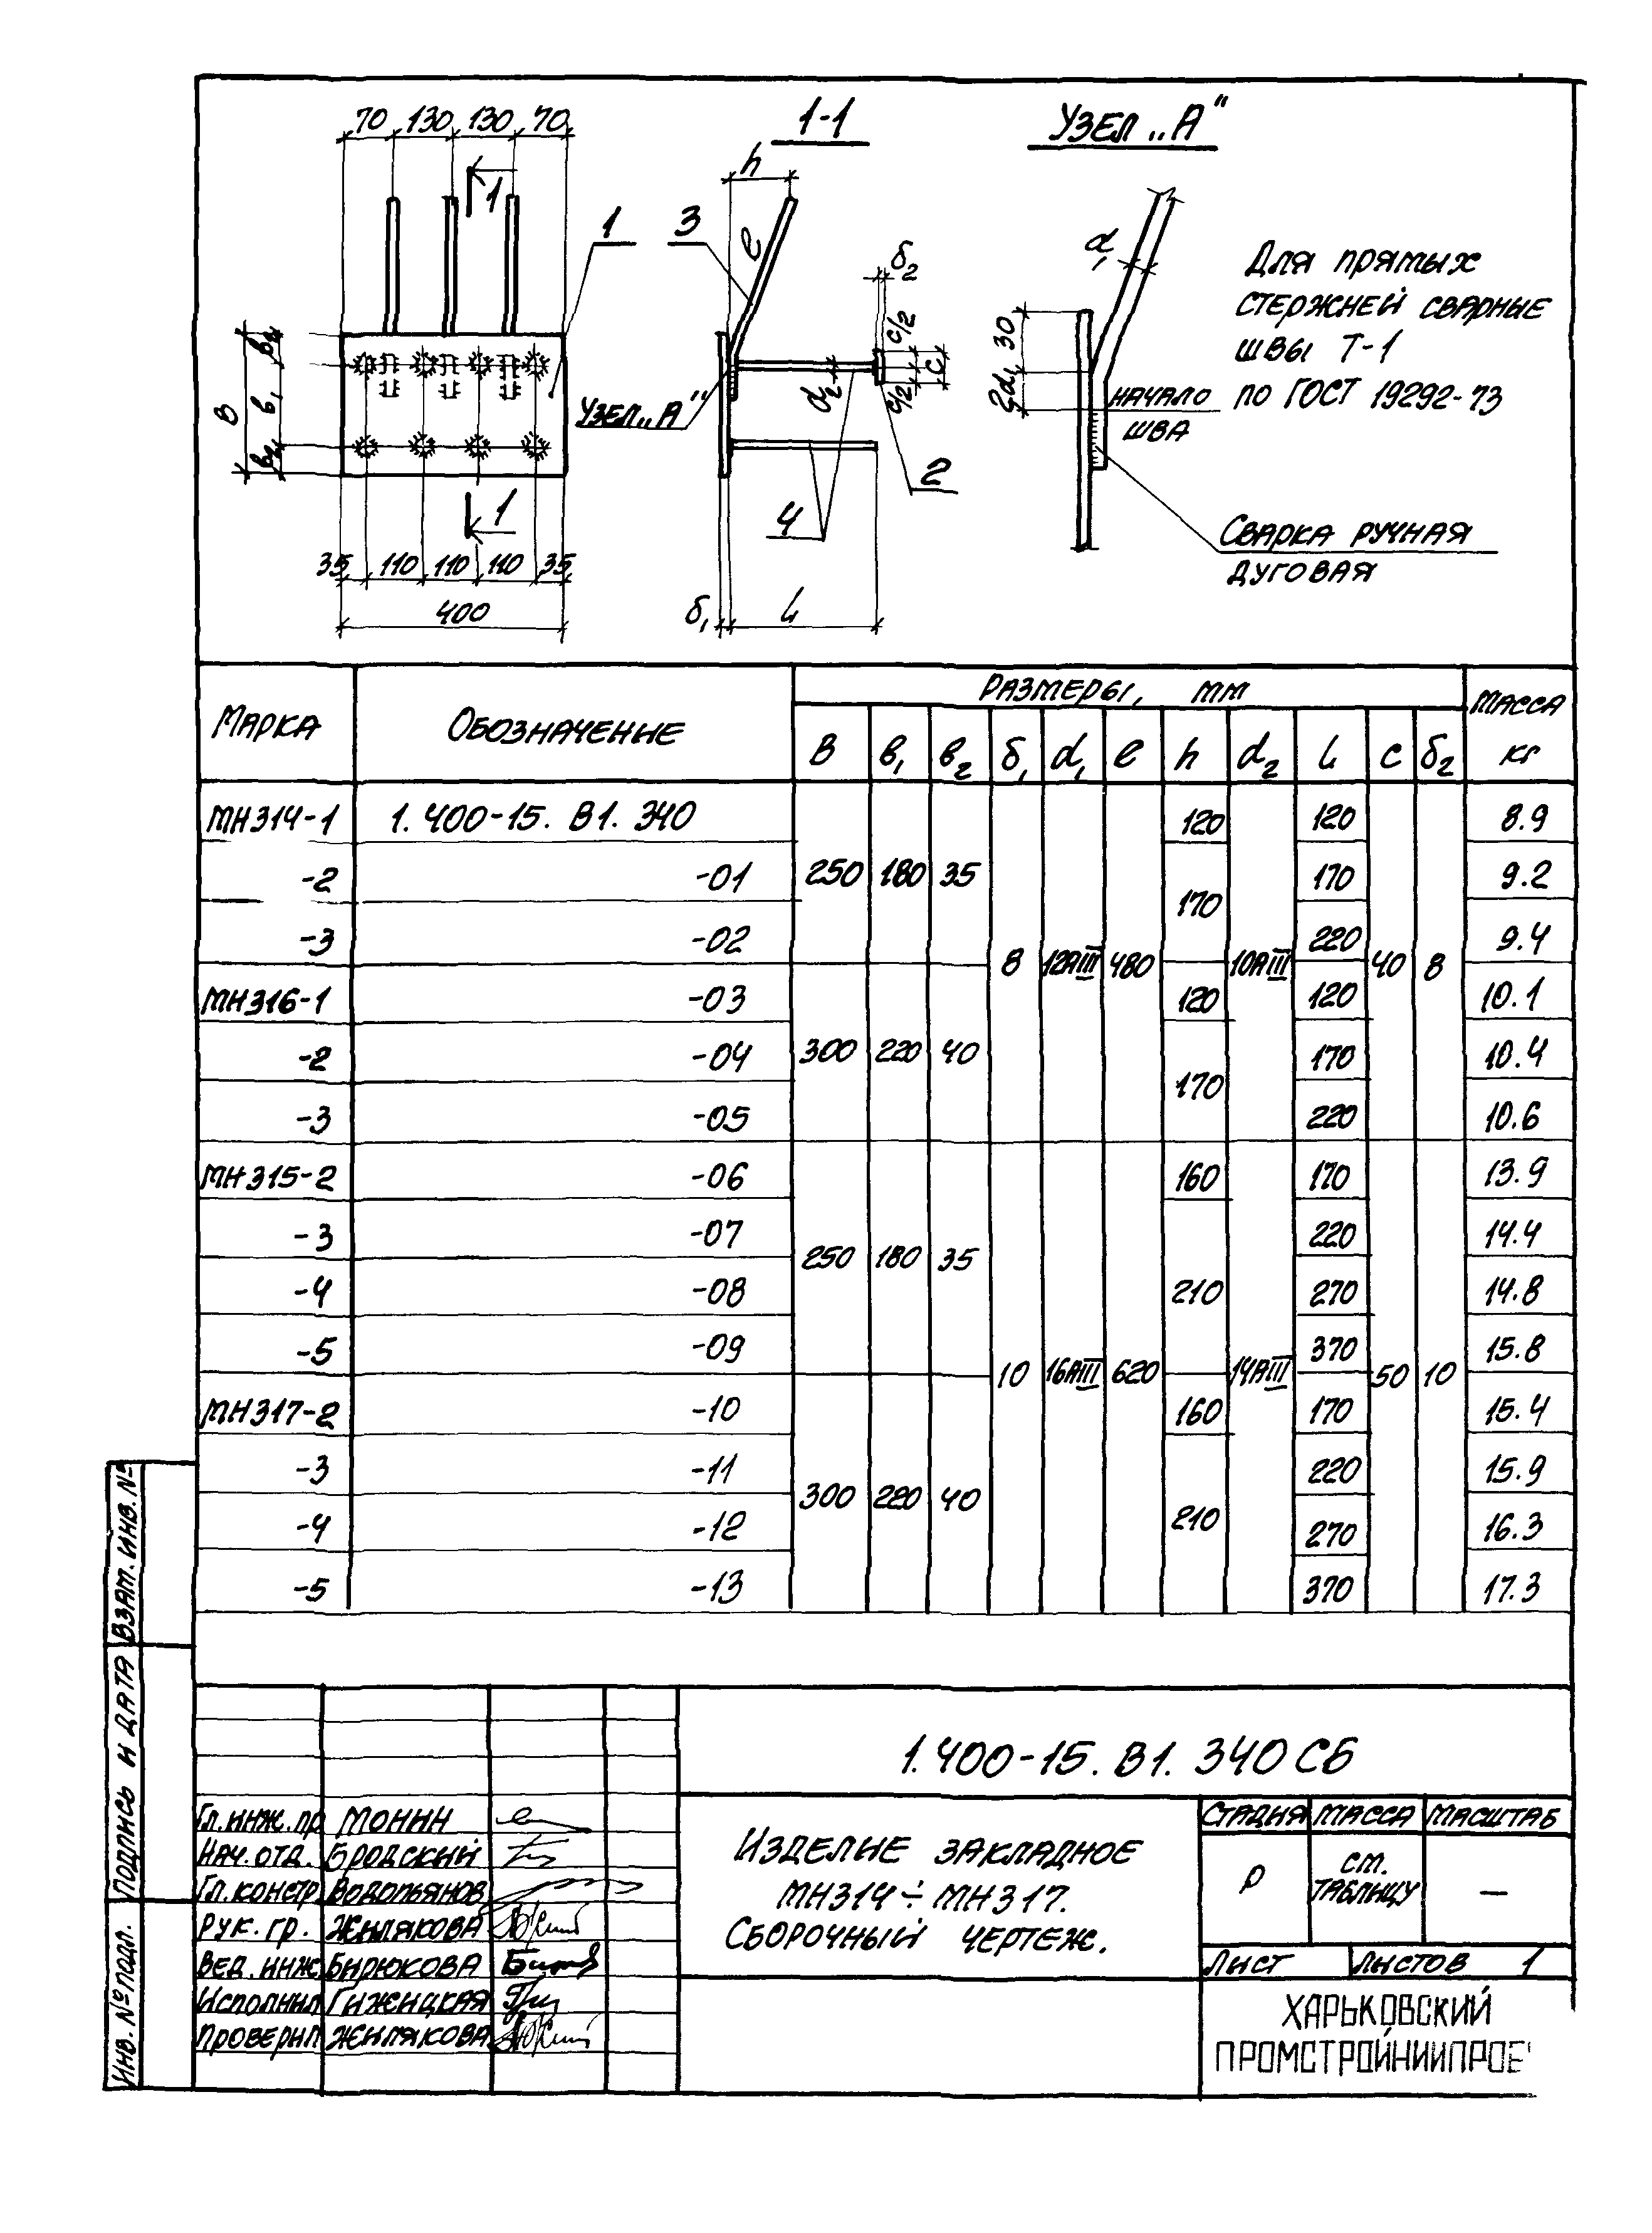 70 130 130 70
1-1
Узел „А"
h
1
1
3
е
δ2
d1
Для прямых
стержней сварные
швы Т-1
по ГОСТ 19292-73
30
2d1
начало
шва
с/2
с
с/2
d2
В
в2
в1
в2
Узел „А"
2
4
1
Сварка ручная
дуговая
35 110 110 110 35
400
δ1
L
Марка Обозначение Размеры, мм Масса
кг
В в1 в2 δ1 d1 е h d2 L с δ2
МН314-1 1.400-15. В1. 340 120 120 8.9
-2 -01 250 180 35 170 9.2
170
-3 -02 220 9.4
8 12АIII 480 10АIII 40 8
МН316-1 -03 120 120 10.1
-2 -04 300 220 40 170 10.4
170
-3 -05 220 10.6
МН315-2 -06 160 170 13.9
-3 -07 220 14.4
250 180 35
-4 -08 210 270 14.8
-5 -09 370 15.8
10 16АIII 620 14АIII 50 10
МН317-2 -10 160 170 15.4
-3 -11 220 15.9
300 220 40
-4 -12 210 270 16.3
-5 -13 370 17.3
Взам. инв. №
Подпись и дата
Инв. № подл.
1.400-15. В1. 340 СБ
Гл. инж. пр Монин
Нач. отд. Бродский
Гл. констр Водопьянов
Рук. гр. Жилякова
Вед. инж. Бирюкова
Исполнил Гижицкая
Проверил Жилякова
Изделие закладное
МН314÷МН317.
Сборочный чертеж.
Стадия Масса Масштаб
Р см. таблицу —
Лист Листов 1
ХАРЬКОВСКИЙ
ПРОМСТРОЙНИИПРОЕ